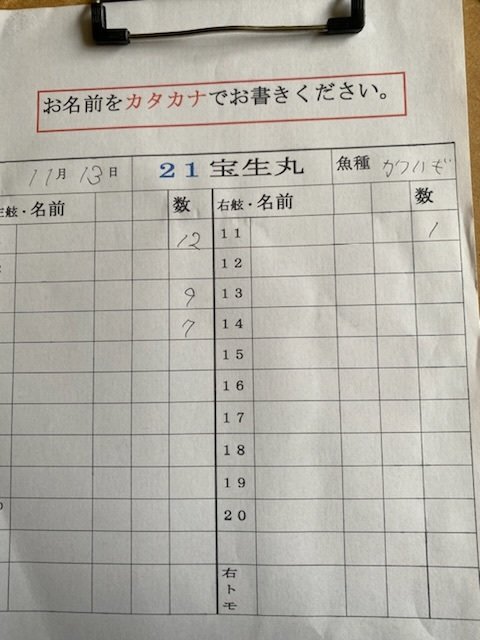 お名前をカタカナでお書きください。
11月13日 21宝生丸 魚種
左舷・名前 数 右舷・名前 数
12 11 1
12
9 13
7 14
15
16
17
18
19
20
右トモ